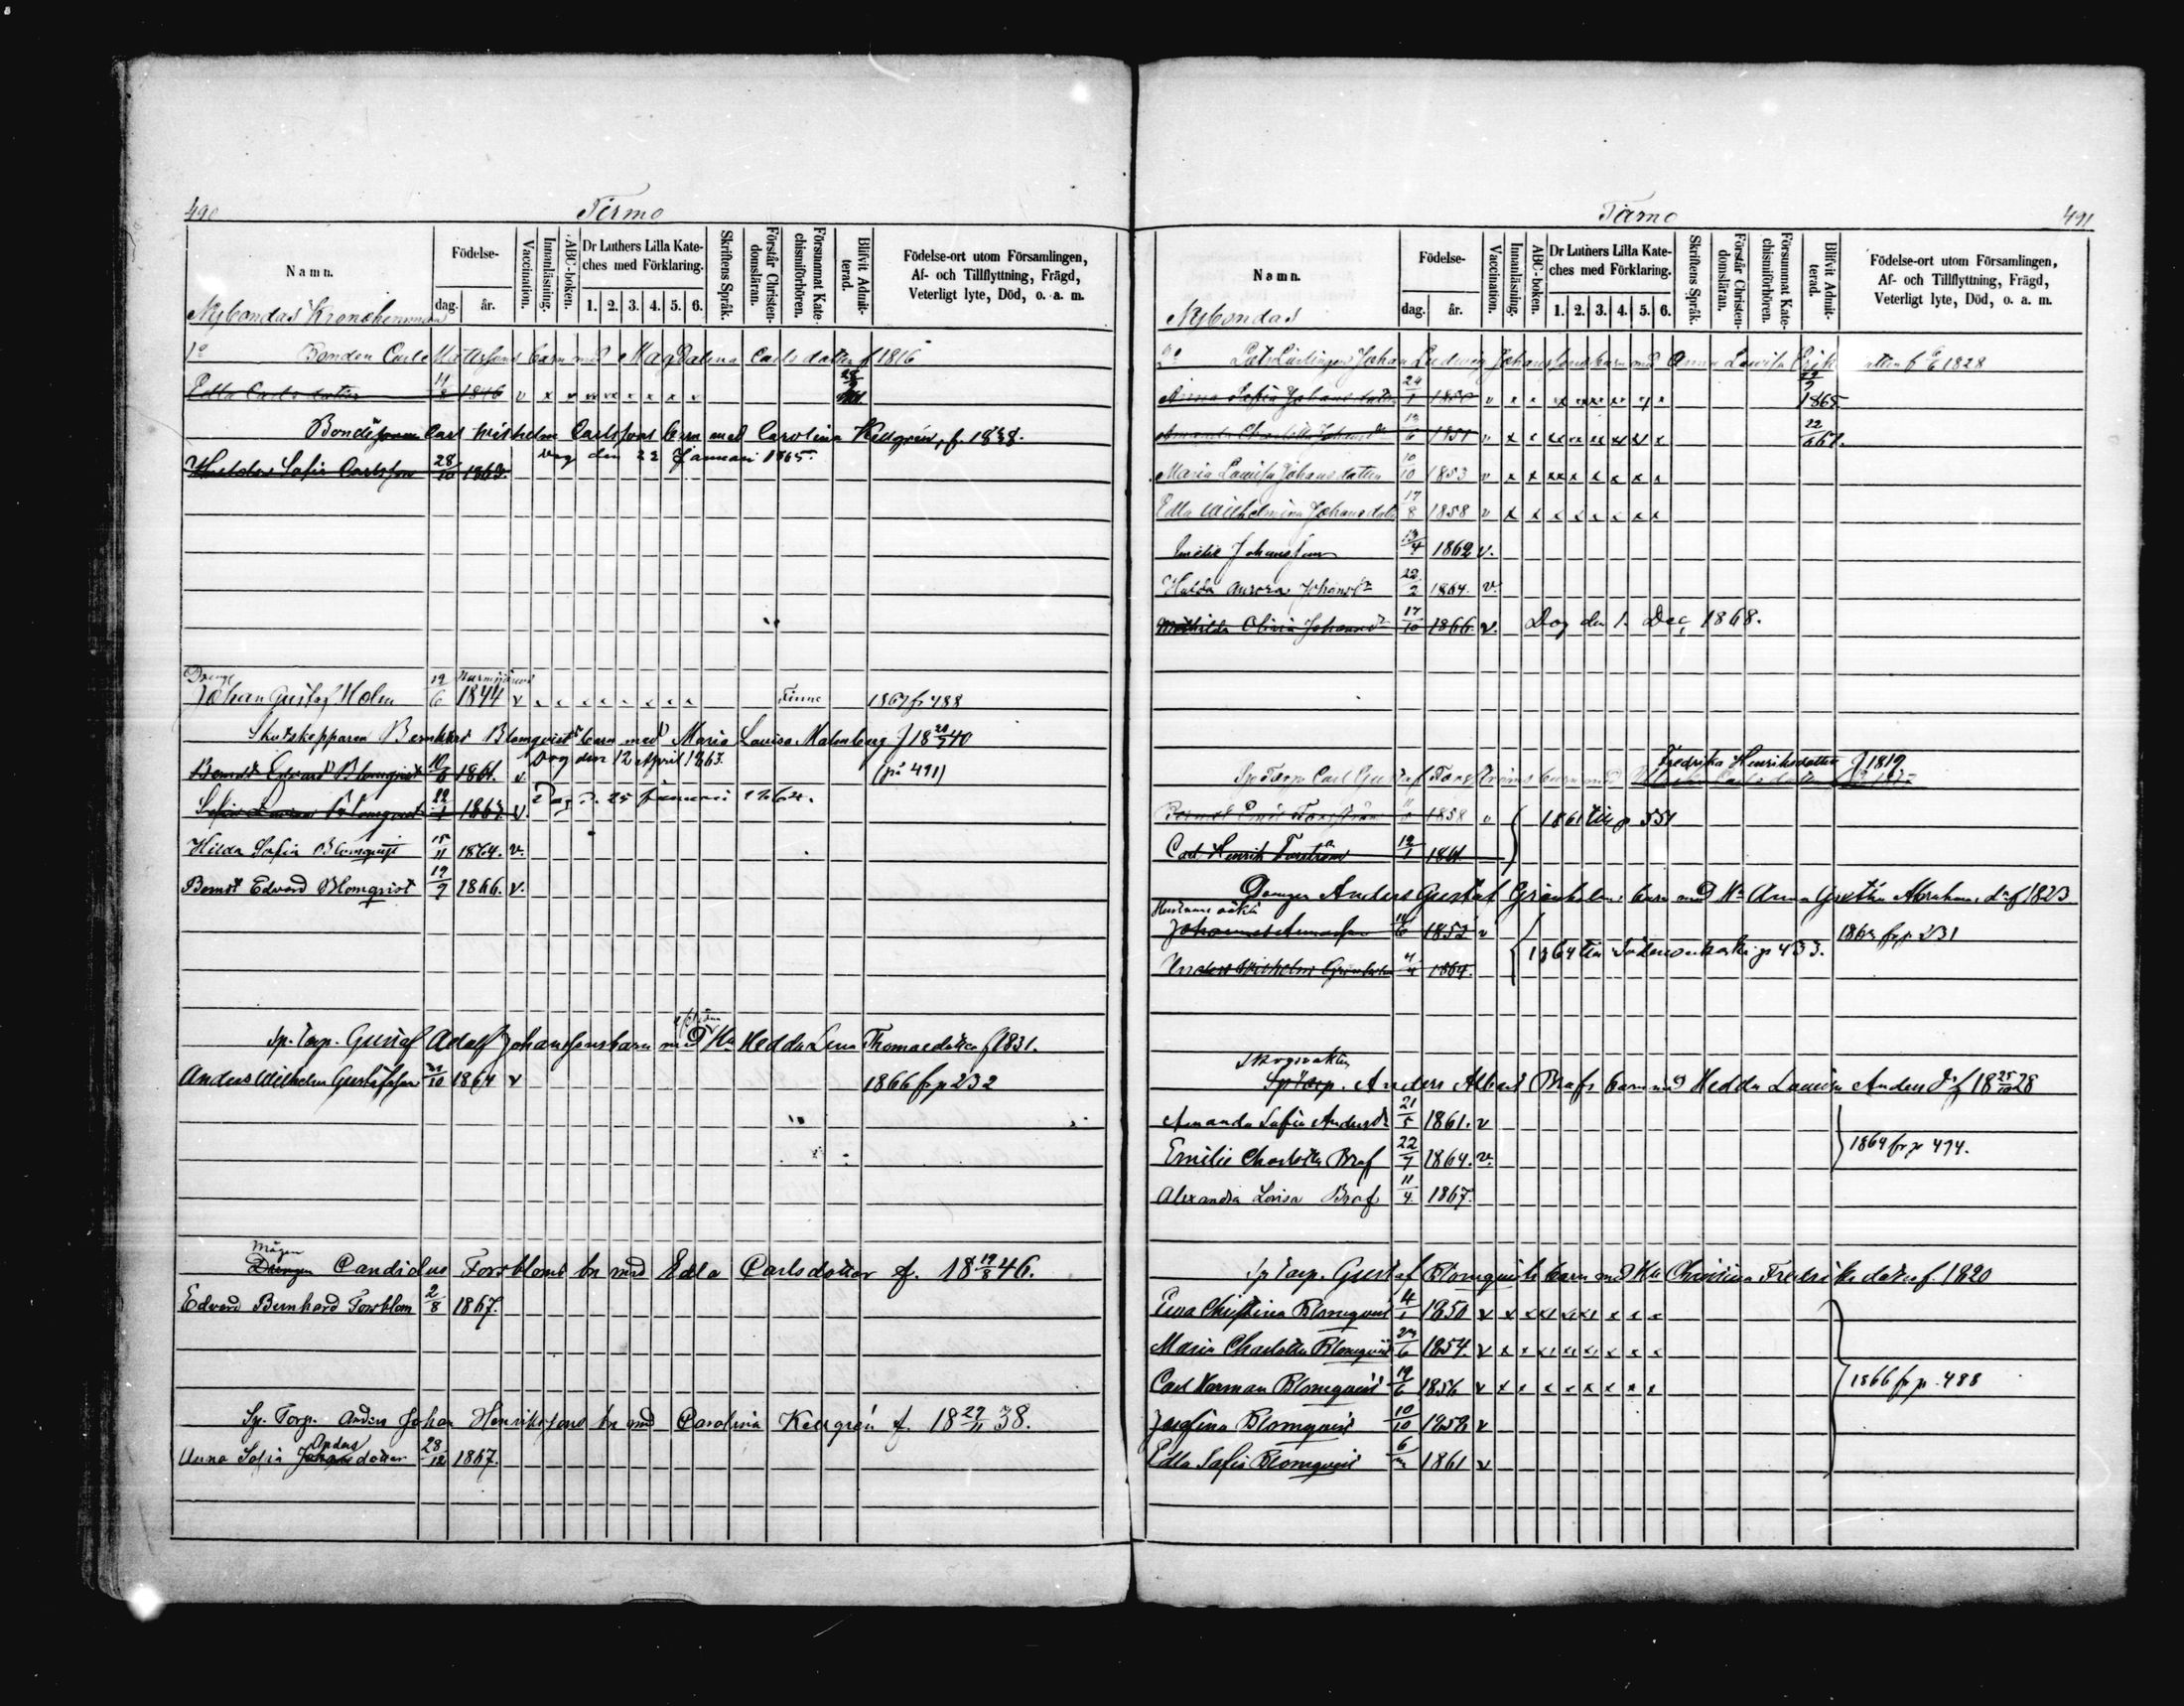 490
Tirmo
Namn.
Födelse-
dag.
år.
Vaccination.
Innanläsning.
ABC-boken.
Dr Luthers Lilla Kate-
ches med Förklaring.
1. 2. 3. 4. 5. 6.
Skriftens Språk.
Förstår Christen-
domsläran.
Försummat Kate-
chismiförhören.
Blifvit Admit-
terad.
Födelse-ort utom Församlingen,
Af- och Tillflyttning, Frägd,
Veterligt lyte, Död, o. a. m.
Nybondas Kronohemman
1o Bonden Carl Mattssons barn med Magdalena Carlsdotter f 1816
Edla Carlsdotter 1846 v
Bonde Carl Wilhelm Carlssons barn med Carolina Kellgrén, f. 1838.
Sofia Carlsson 28/10 1863. Dog den 22 Januari 1865.
Dreng
Johan Gustaf Holm 19/6 1844 v Finne 1867 fr 488
Skutskepparen Bernhard Blomqvists barn med Maria Lovisa Malmberg f 18 40
Berndt Edvard Blomqvist 10/6 1861. v Dog den 12 April 1863. (på 491)
Sofia Blomqvist 1863. v. Dog d. 25 Januari 1864.
Hilda Sofia Blomqvist 15/11 1864. v.
Berndt Edvard Blomqvist 19/9 1866. v.
Sp. Torp. Gustaf Adolf Johanssons barn med Hu Hedda Lena Thomaedotter f 1831.
Anders Wilhelm Gustafsson 1864 v 1866 fr p 232
Mågen
Drengen Candidus Forsbloms bn med Edla Carlsdotter f. 18 19/8 46.
Edvard Bernhard Forsblom 2/8 1867.
Sp. Torp. Anders Johan Henrikssons bn med Carolina Kellgrén f. 18 29/11 38.
Anders
Anna Sofia Johansdotter 28/12 1867.
491
Tirmo
Namn.
Födelse-
dag.
år.
Vaccination.
Innanläsning.
ABC-boken.
Dr Luthers Lilla Kate-
ches med Förklaring.
1. 2. 3. 4. 5. 6.
Skriftens Språk.
Förstår Christen-
domsläran.
Försummat Kate-
chismiförhören.
Blifvit Admit-
terad.
Födelse-ort utom Församlingen,
Af- och Tillflyttning, Frägd,
Veterligt lyte, Död, o. a. m.
Nybondas
2o Johan Ludvig Johanssons barn med Anna Lovisa Eriksdotter f 1828
Anna Sofia Johansdotter 24/1 1850 v 1865
Amanda Charlotta Johansdr 1851 v 22/6 67.
Maria Lovisa Johansdotter 10/10 1853 v
Edla Wilhelmina Johansdotter 17/8 1858 v
Emelie Johansson 13/4 1862 v.
Hulda Aurora Johansdr 22/2 1864. v.
Mathilda Olivia Johansdr 17/10 1866 v. Dog den 1. Dec. 1868.
Fredrika Henriksdotter f 1819
Sp Torp. Carl Gustaf Forsströms barn med
Berndt Emil Forsström 1858 v
1861 till p 551
Carl Henrik Forsström 12/1 1861
Drengen Anders Gustaf Grönholms barn med Hu Anna Gretha Abrahamsdr f 1823
Hustruns oäkta
1852 v
1864 fr p 231
1864 till p 433.
Anders Wilhelm Grönholm 1864.
Skogsvakten
Sp Torp. Anders Albert Brafs barn med Hedda Lovisa Andersdr f 18 25/10 28
Amanda Sofia Andersdr 21/5 1861. v
1864 fr p 494.
Emilie Charlotta Braf 22/7 1864. v.
Alexandra Lovisa Braf 11/4 1867.
Sp Torp. Gustaf Blomqvists barn med Hu Christina Fredriksdotter f. 1820
Eva Christina Blomqvist 4/1 1850 v
Maria Charlotta Blomqvist 1854. v
Carl Herman Blomqvist 19/6 1856 v
1866 fr p. 488
Josefina Blomqvist 10/10 1858 v
Edla Sofia Blomqvist 1861 v